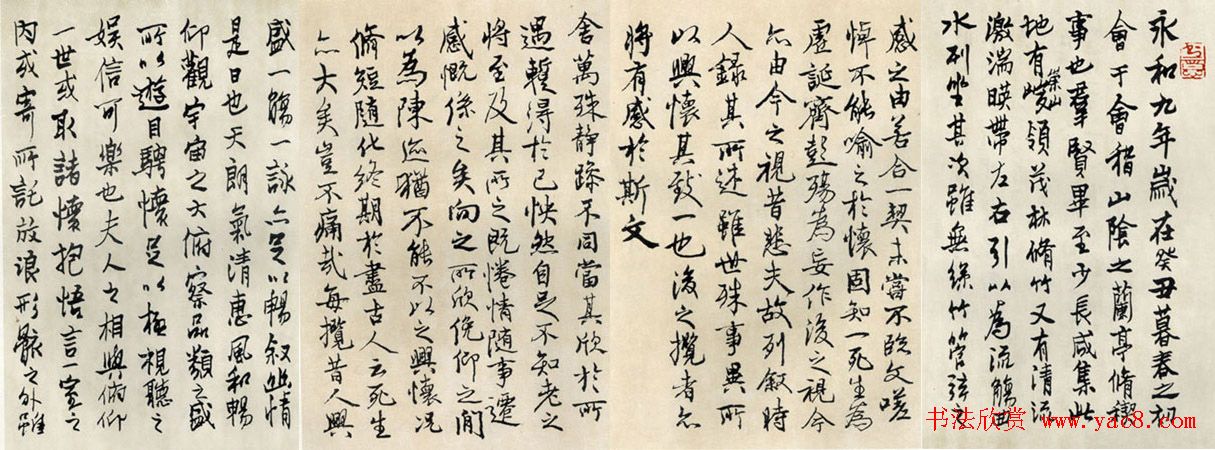 永和九年歲在癸丑暮春之初
會于會稽山陰之蘭亭脩稧
事也羣賢畢至少長咸集此
地有崇山峻領茂林脩竹又有清流
激湍暎帶左右引以為流觴曲
水列坐其次雖無絲竹管弦之
盛一觴一詠亦足以暢敘幽情
是日也天朗氣清惠風和暢
仰觀宇宙之大俯察品類之盛
所以遊目騁懷足以極視聽之
娛信可樂也夫人之相與俯仰
一世或取諸懷抱悟言一室之
內或寄所託放浪形骸之外雖
舍萬殊靜躁不同當其欣於所
遇蹔得於己怏然自足不知老之
將至及其所之既惓情隨事遷
感慨係之矣向之所欣俛仰之閒
以為陳迹猶不能不以之興懷況
脩短隨化終期於盡古人云死生
亦大矣豈不痛哉每攬昔人興
感之由若合一契未嘗不臨文嗟
悼不能喻之於懷固知一死生為
虛誕齊彭殤為妄作後之視今
亦由今之視昔悲夫故列敘時
人錄其所述雖世殊事異所
以興懷其致一也後之攬者亦
將有感於斯文
书法欣赏 www.yac8.com